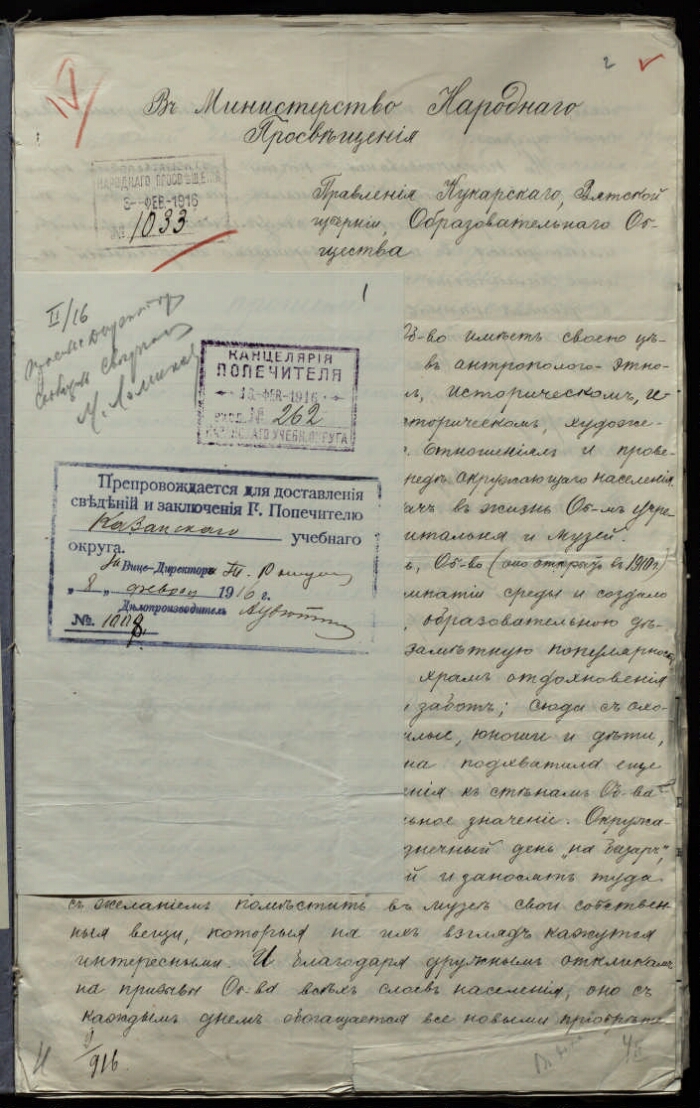 2
IV
Въ Министерство Народнаго
Просвѣщенія
НАРОДНАГО ПРОСВѢЩЕНІЯ
3-ФЕВ.-1916
№ 1033
Правленія Кукарскаго, Вятской
губерніи, Образовательнаго Об-
щества
1
II/16
КАНЦЕЛЯРІЯ
ПОПЕЧИТЕЛЯ
ФЕВ.-1916
№ 262
УЧЕБН. ОКРУГА
Препровождается для доставленія
свѣдѣній и заключенія Г. Попечителю
Казанскаго учебнаго
округа.
Вице-Директоръ
„8„ февраля 1916 г.
Дѣлопроизводитель
№. 1008
-во имѣетъ свою цѣ-
въ антрополого-этно-
историческомъ,
торическомъ, художе-
отношеніяхъ и прове-
окружающаго населенія
въ жизнь Об-мъ учре-
тальня и музей.
Об-во (оно открыто въ 1910 г)
среды и создало
образовательною дѣ-
замѣтную популярность
храмъ отдохновенія
заботъ; сюда съ охо-
юноши и дѣти,
на подхватила еще
нія къ стѣнамъ Об-ва
ьное значеніе. Окружа-
день „на базаръ",
й и заносятъ туда
съ желаніемъ помѣстить въ музеѣ свои собствен-
ныя вещи, которыя на ихъ взглядъ кажутся
интересными. И благодаря дружнымъ откликамъ
на призывы Об-ва всѣхъ слоевъ населенія, оно съ
каждымъ днемъ обогащается все новыми пріобрѣте-
916.